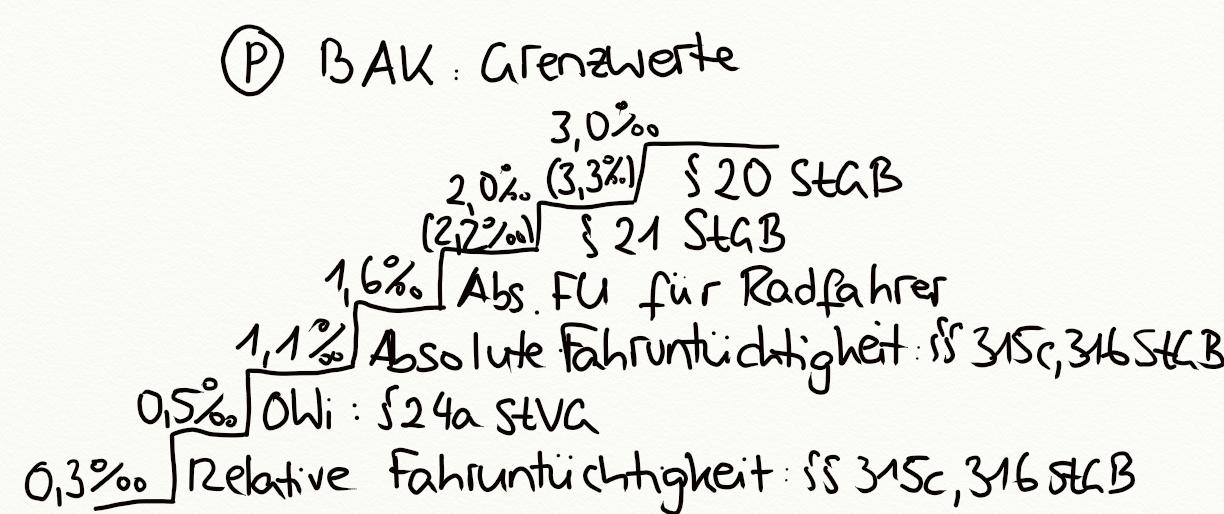 Ⓟ BAK: Grenzwerte
3,0‰
(3,3‰) § 20 StGB
2,0‰
(2,2‰) § 21 StGB
1,6‰ Abs. FU für Radfahrer
1,1‰ Absolute Fahruntüchtigkeit: §§ 315c, 316 StGB
0,5‰ OWi: § 24a StVG
0,3‰ Relative Fahruntüchtigkeit: §§ 315c, 316 StGB